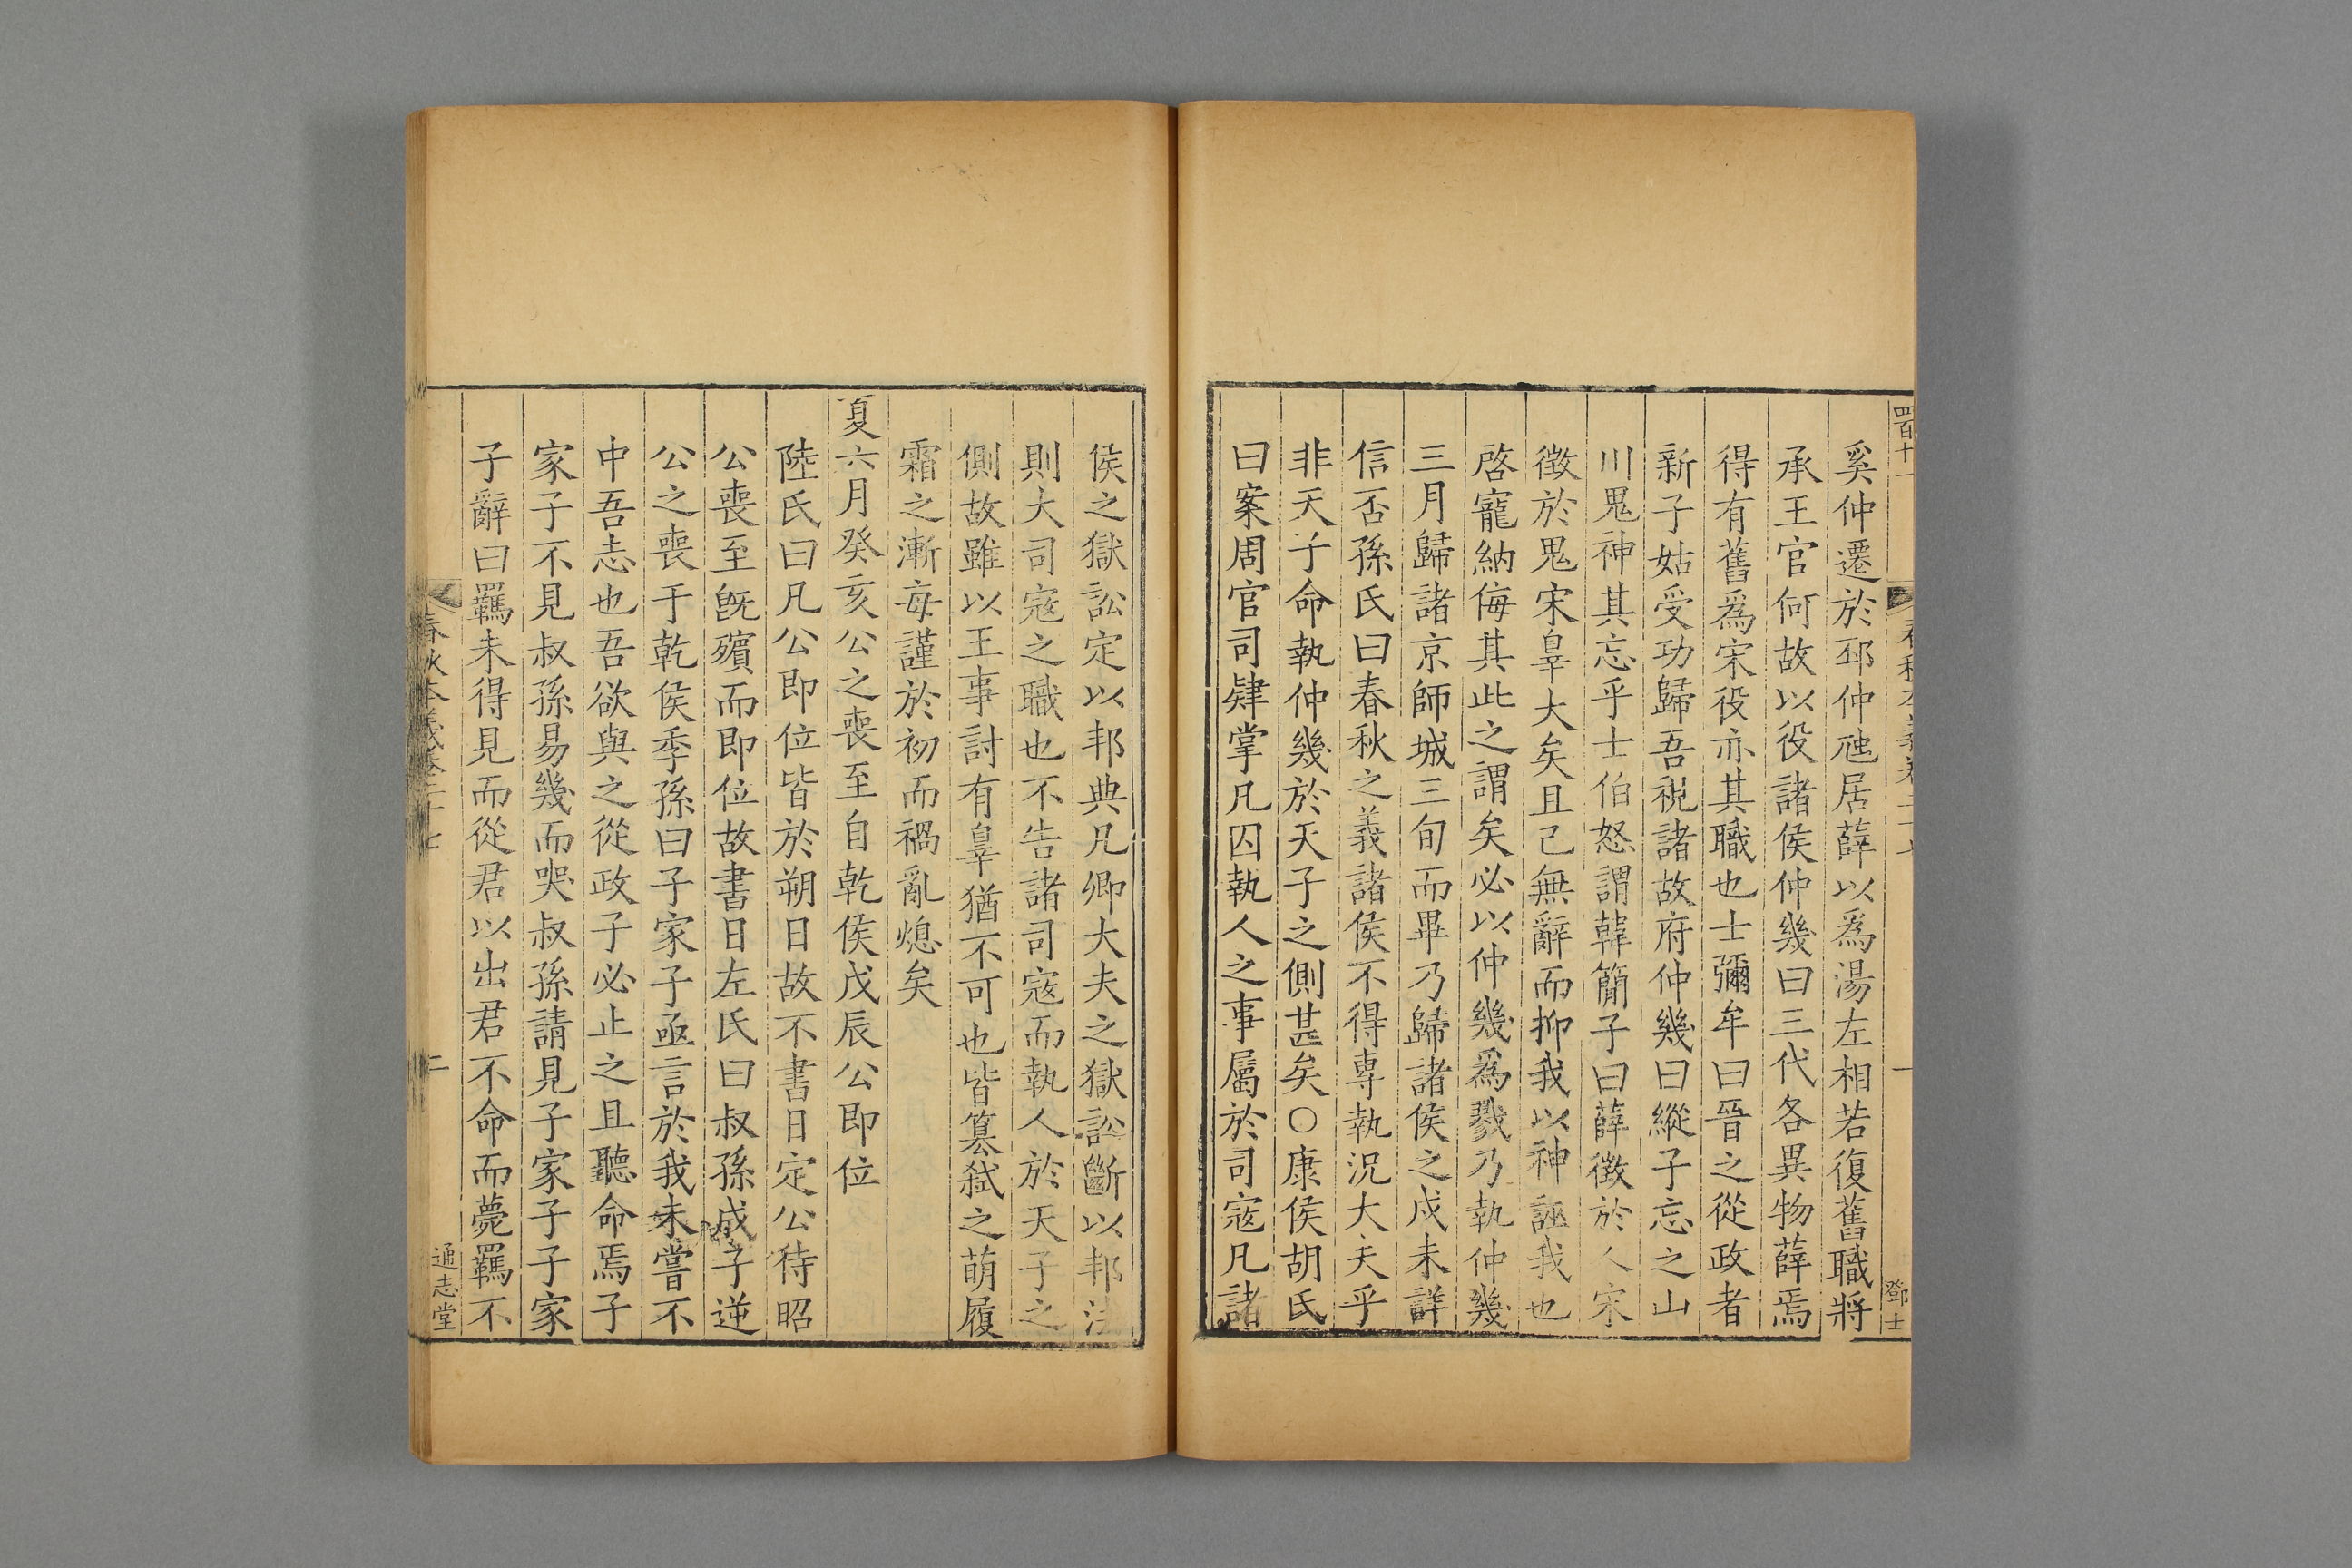 四百十一
奚仲遷於邳仲虺居薛以爲湯左相若復舊職將
承王官何故以役諸侯仲幾曰三代各異物薛焉
得有舊爲宋役亦其職也士彌牟曰晉之從政者
新子姑受功歸吾視諸故府仲幾曰縱子忘之山
川鬼神其忘乎士伯怒謂韓簡子曰薛徵於人宋
徵於鬼宋辠大矣且己無辭而抑我以神誣我也
啓寵納侮其此之謂矣必以仲幾爲戮乃執仲幾
三月歸諸京師城三旬而畢乃歸諸侯之戍未詳
信否孫氏曰春秋之義諸侯不得專執況大夫乎
非天子命執仲幾於天子之側甚矣○康侯胡氏
曰案周官司肄掌凡囚執人之事屬於司寇凡諸
侯之獄訟定以邦典凡卿大夫之獄訟斷以邦法
則大司寇之職也不告諸司寇而執人於天子之
側故雖以王事討有辠猶不可也皆篡弑之萌履
霜之漸毎謹於初而禍亂熄矣
夏六月癸亥公之喪至自乾侯戊辰公即位
陸氏曰凡公即位皆於朔日故不書日定公待昭
公喪至旣殯而即位故書日左氏曰叔孫成子逆
公之喪于乾侯季孫曰子家子亟言於我未嘗不
中吾志也吾欲與之從政子必止之且聽命焉子
家子不見叔孫易幾而哭叔孫請見子家子子家
子辭曰羈未得見而從君以出君不命而薨羈不
春秋本義卷二十七
二
通志堂